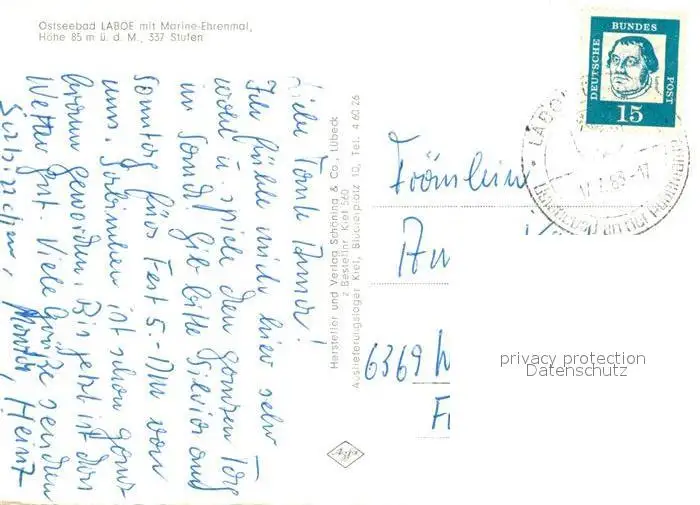 Ostseebad LABOE mit Marine-Ehrenmal,
Höhe 85 m ü. d. M., 337 Stufen
Liebe Tante Anna!
Ich fühle mich hier sehr
wohl u. spiele den ganzen Tag
im Sand. Gib bitte Silvia
Sonntag fürs Fest 5.-DM von
uns. ist schon ganz
braun geworden. Bis jetzt ist das
Wetter gut. Viele Grüße senden
Heinz
Hersteller und Verlag Schöning & Co., Lübeck
Bestellnr. Kiel 560
Auslieferungslager Kiel, Blücherplatz 10, Tel. 4 60 26
Agfa
DEUTSCHE
BUNDES
POST
15
LABOE
Fräulein
An
6369
privacy protection
Datenschutz